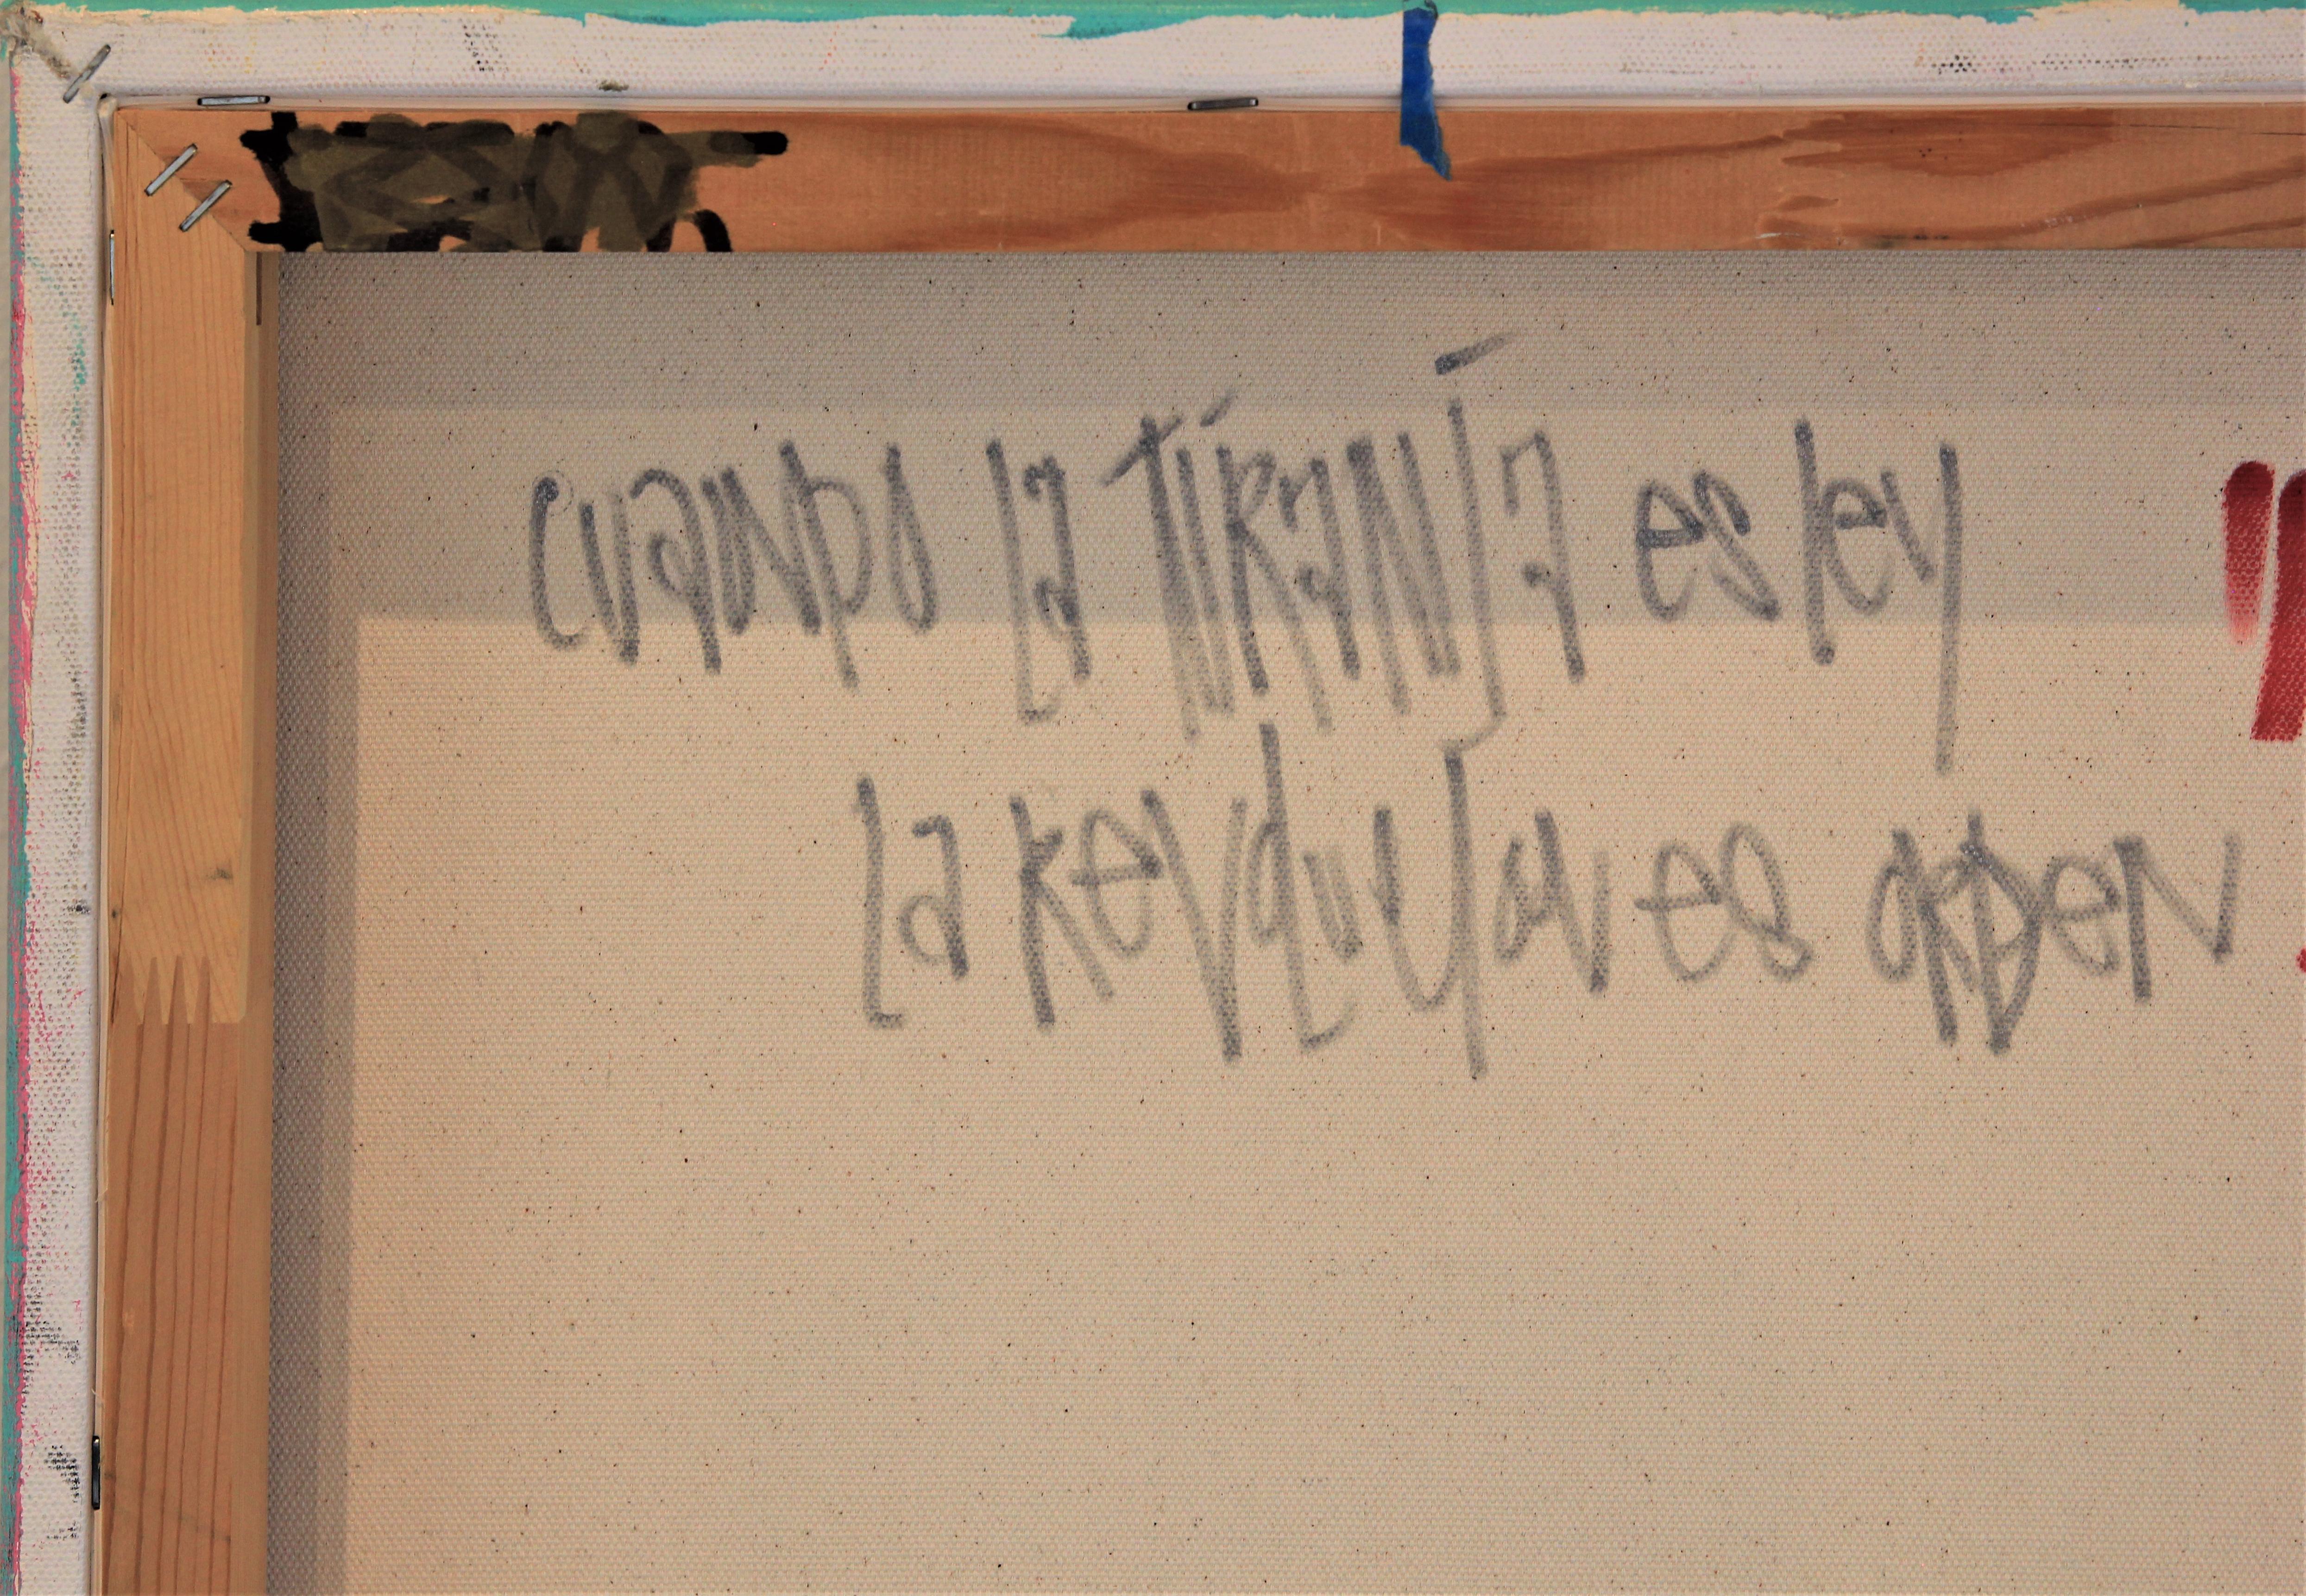 cuando la tiranía es ley
la revolución es orden